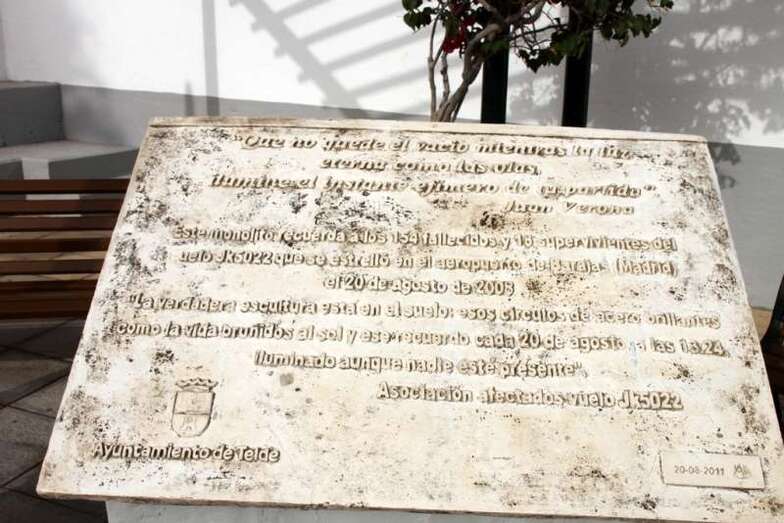 "Que no quede el vacío mientras la luz,
eterna como las olas,
ilumine el instante efímero de tu partida"
Juan Verona
Este monolito recuerda a los 154 fallecidos y 18 supervivientes del
vuelo JK5022 que se estrelló en el aeropuerto de Barajas (Madrid)
el 20 de agosto de 2008
"La verdadera escultura está en el suelo: esos círculos de acero brillantes
como la vida bruñidos al sol y ese recuerdo cada 20 de agosto, a las 13.24,
iluminado aunque nadie esté presente".
Asociación afectados vuelo Jk5022
Ayuntamiento de Telde
20-08-2011